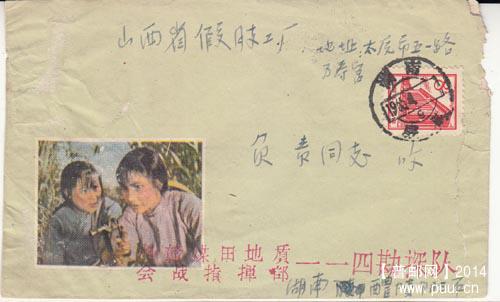 山西省假肢工厂
地址:太原市五一路
万寿宫
湖南
负责同志 收
煤田地质
会战指挥部 一一四勘探队
湖南 醴
【普邮网】2014
www.puu.cn